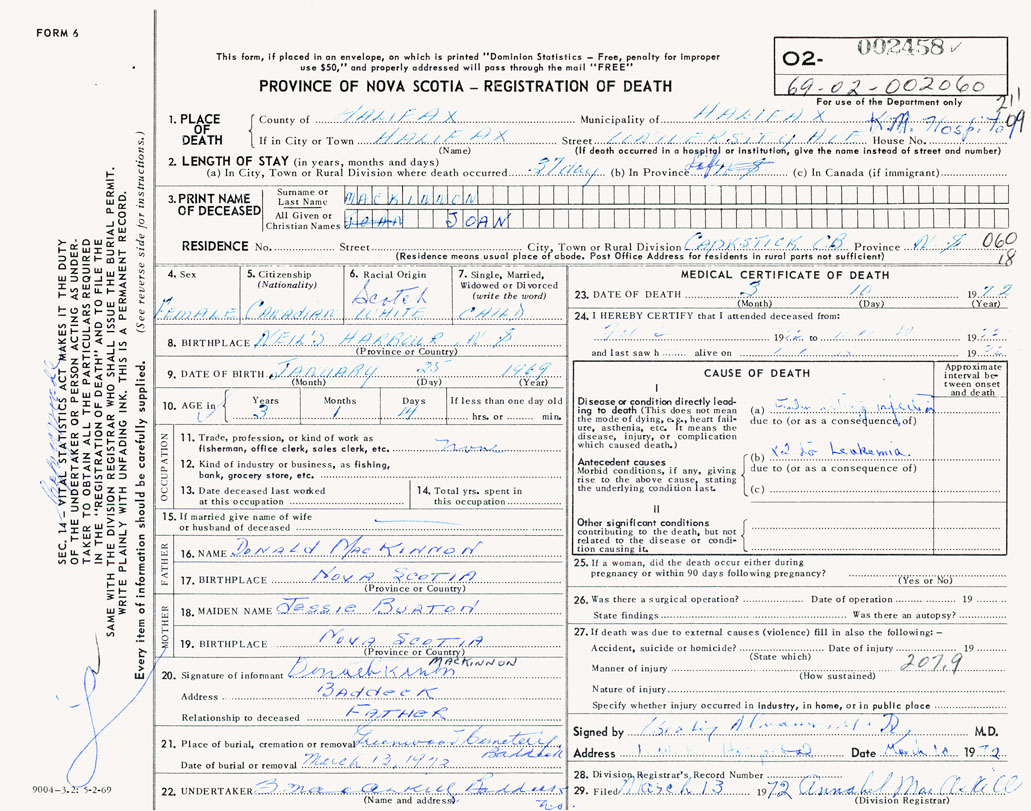 FORM 6
This form, if placed in an envelope, on which is printed "Dominion Statistics – Free, penalty for improper
use $50," and properly addressed will pass through the mail "FREE"
PROVINCE OF NOVA SCOTIA – REGISTRATION OF DEATH
O2-
002458
69-02-002060
For use of the Department only
211
09
1. PLACE OF DEATH
County of HALIFAX Municipality of HALIFAX
If in City or Town HALIFAX Street UNIVERSITY AVE House No. K.M. Hospital
(Name) (If death occurred in a hospital or institution, give the name instead of street and number)
2. LENGTH OF STAY (in years, months and days)
(a) In City, Town or Rural Division where death occurred 37 day (b) In Province (c) In Canada (if immigrant)
3. PRINT NAME OF DECEASED
Surname or Last Name MACKINNON
All Given or Christian Names JOAN JOAN
RESIDENCE No. Street City, Town or Rural Division CAPSTICK CB Province N.S 060
18
(Residence means usual place of abode. Post Office Address for residents in rural parts not sufficient)
4. Sex
FEMALE
5. Citizenship
(Nationality)
CANADIAN
6. Racial Origin
Scotch
WHITE
7. Single, Married,
Widowed or Divorced
(write the word)
CHILD
8. BIRTHPLACE NEIL'S HARBOUR N.S
(Province or Country)
9. DATE OF BIRTH JANUARY 25 1969
(Month) (Day) (Year)
10. AGE in
Years Months Days If less than one day old
3 1 14 hrs. or min.
OCCUPATION
11. Trade, profession, or kind of work as
fisherman, office clerk, sales clerk, etc. none
12. Kind of industry or business, as fishing,
bank, grocery store, etc.
13. Date deceased last worked
at this occupation
14. Total yrs. spent in
this occupation
15. If married give name of wife
or husband of deceased
FATHER
16. NAME DONALD MACKINNON
17. BIRTHPLACE NOVA SCOTIA
(Province or Country)
MOTHER
18. MAIDEN NAME JESSIE BURTON
19. BIRTHPLACE NOVA SCOTIA
(Province or Country)
MACKINNON
20. Signature of informant
Address BADDECK
Relationship to deceased FATHER
21. Place of burial, cremation or removal Greenwood Cemetery
Baddeck
Date of burial or removal March 13, 1972
22. UNDERTAKER Baddeck
(Name and address) N.S.
MEDICAL CERTIFICATE OF DEATH
23. DATE OF DEATH 3 10 1972
(Month) (Day) (Year)
24. I HEREBY CERTIFY that I attended deceased from:
19 to 19
and last saw h alive on 19
CAUSE OF DEATH
Approximate
interval be-
tween onset
and death
I
Disease or condition directly lead-
ing to death (This does not mean
the mode of dying, e.g., heart fail-
ure, asthenia, etc. It means the
disease, injury, or complication
which caused death.)
(a) infection
due to (or as a consequence of)
Antecedent causes
Morbid conditions, if any, giving
rise to the above cause, stating
the underlying condition last.
(b) to Leukemia.
due to (or as a consequence of)
(c)
II
Other significant conditions
contributing to the death, but not
related to the disease or condi-
tion causing it.
25. If a woman, did the death occur either during
pregnancy or within 90 days following pregnancy?
(Yes or No)
26. Was there a surgical operation? Date of operation 19
State findings Was there an autopsy?
27. If death was due to external causes (violence) fill in also the following:–
Accident, suicide or homicide? Date of injury 19
(State which)
Manner of injury 207.9
(How sustained)
Nature of injury
Specify whether injury occurred in industry, in home, or in public place
Signed by M.D.
Address Hospital Date March 10 1972
28. Division Registrar's Record Number
29. Filed March 13 1972 Annabel MacAskill
(Division Registrar)
SEC. 14 – VITAL STATISTICS ACT MAKES IT THE DUTY
OF THE UNDERTAKER OR PERSON ACTING AS UNDER-
TAKER TO OBTAIN ALL THE PARTICULARS REQUIRED
IN THE "REGISTRATION OF DEATH" AND TO FILE THE
SAME WITH THE DIVISION REGISTRAR WHO SHALL ISSUE THE BURIAL PERMIT.
WRITE PLAINLY WITH UNFADING INK. THIS IS A PERMANENT RECORD.
Every item of information should be carefully supplied. (See reverse side for instructions.)
9004–3.2: 5-2-69